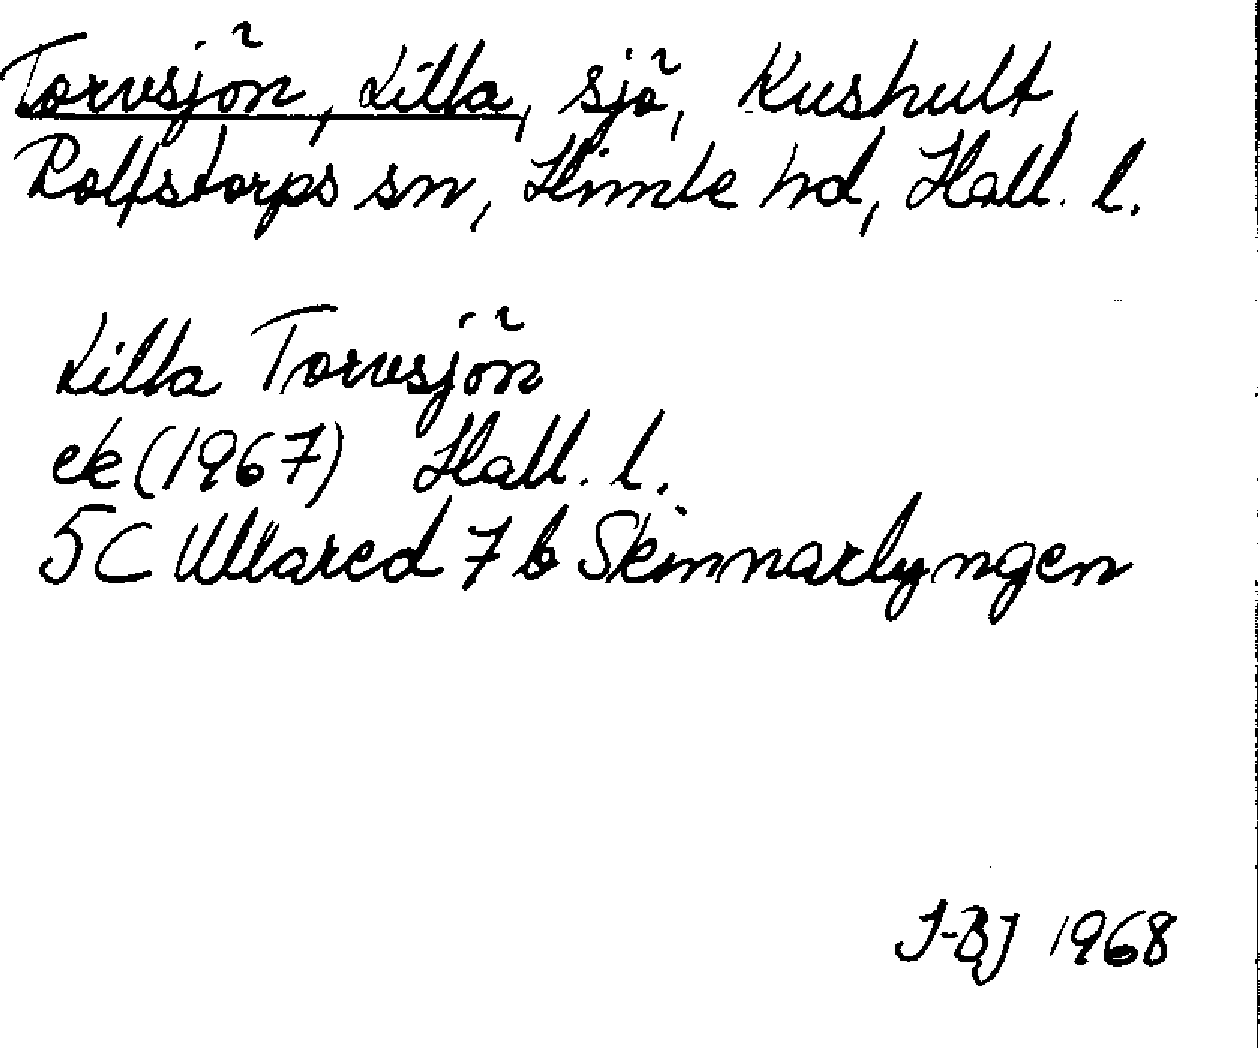 Torvsjön, Lilla, sjö, Kushult,
Rolfstorps sn, Himle hd, Hall. l.
Lilla Torvsjön
ek (1967) Hall. l.
5C Ullared 7 b Skinnarlyngen
J-BJ 1968